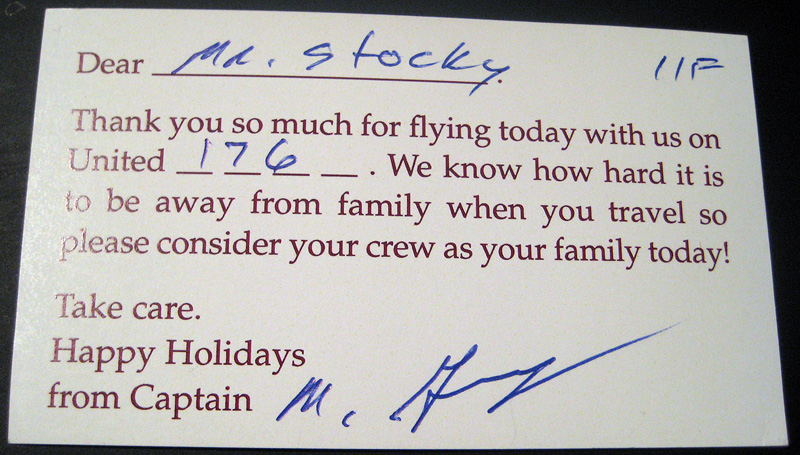 Dear Mr. Stocky. 11F
Thank you so much for flying today with us on
United 176 . We know how hard it is
to be away from family when you travel so
please consider your crew as your family today!
Take care.
Happy Holidays
from Captain M.